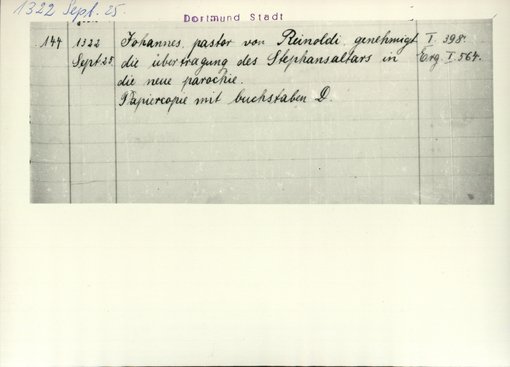 1322 Sept. 25.
Dortmund Stadt
144 1322 Johannes, pastor von Reinoldi, genehmigt I 398.
Sept. 25. die übertragung des Stephansaltars in Erg. I. 564.
die neue parochie.
Papiercopie mit buchstaben D.